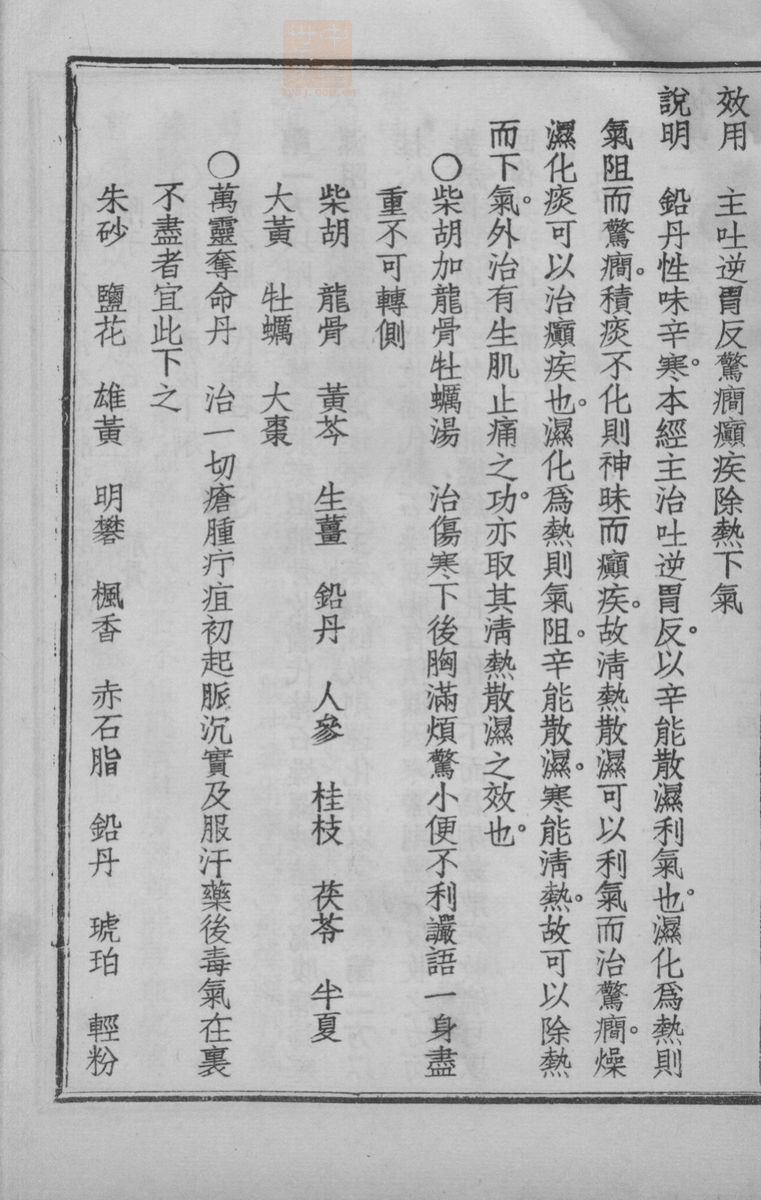 效用　主吐逆胃反驚癇癲疾除熱下氣
說明　鉛丹性味辛寒。本經主治吐逆胃反。以辛能散濕利氣也。濕化爲熱則
氣阻而驚癇。積痰不化則神昧而癲疾。故淸熱散濕可以利氣而治驚癇。燥
濕化痰可以治癲疾也。濕化爲熱則氣阻。辛能散濕。寒能淸熱。故可以除熱
而下氣。外治有生肌止痛之功。亦取其淸熱散濕之效也。
〇柴胡加龍骨牡蠣湯　治傷寒下後胸滿煩驚小便不利讝語一身盡
重不可轉側
柴胡　龍骨　黃芩　生薑　鉛丹　人參　桂枝　茯苓　半夏
大黃　牡蠣　大棗
〇萬靈奪命丹　治一切瘡腫疔疽初起脈沉實及服汗藥後毒氣在裏
不盡者宜此下之
朱砂　鹽花　雄黃　明礬　楓香　赤石脂　鉛丹　琥珀　輕粉